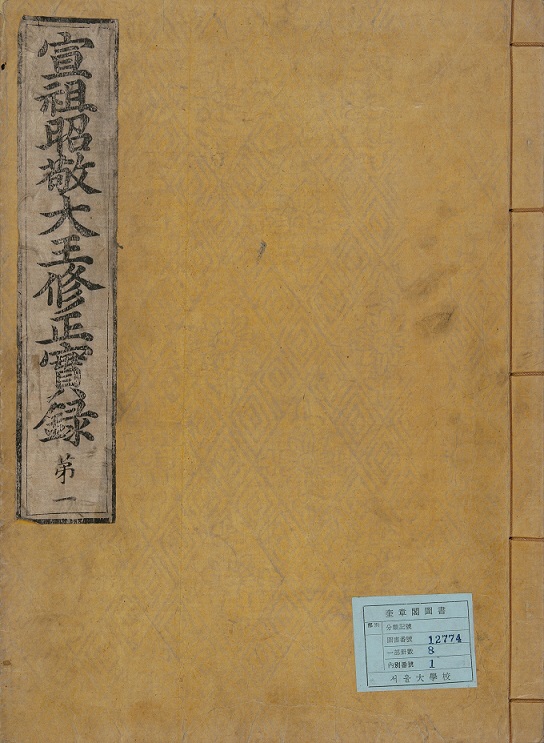 宣祖昭敬大王修正實錄
第一
奎章閣圖書
分類記號
圖書番號 12774
一部冊數 8
內別番號 1
서울大學校